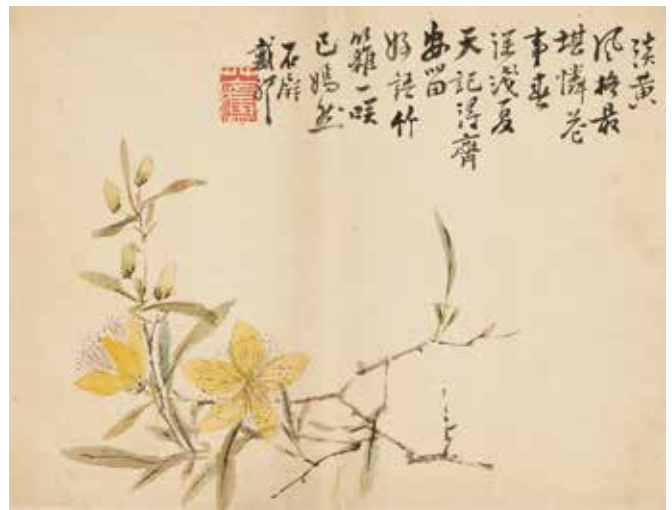 淡黃
風格最
堪憐花
事春
深淺夏
天記得齊
安留
好語竹
籬一咲
已嫣然
石屏
戴